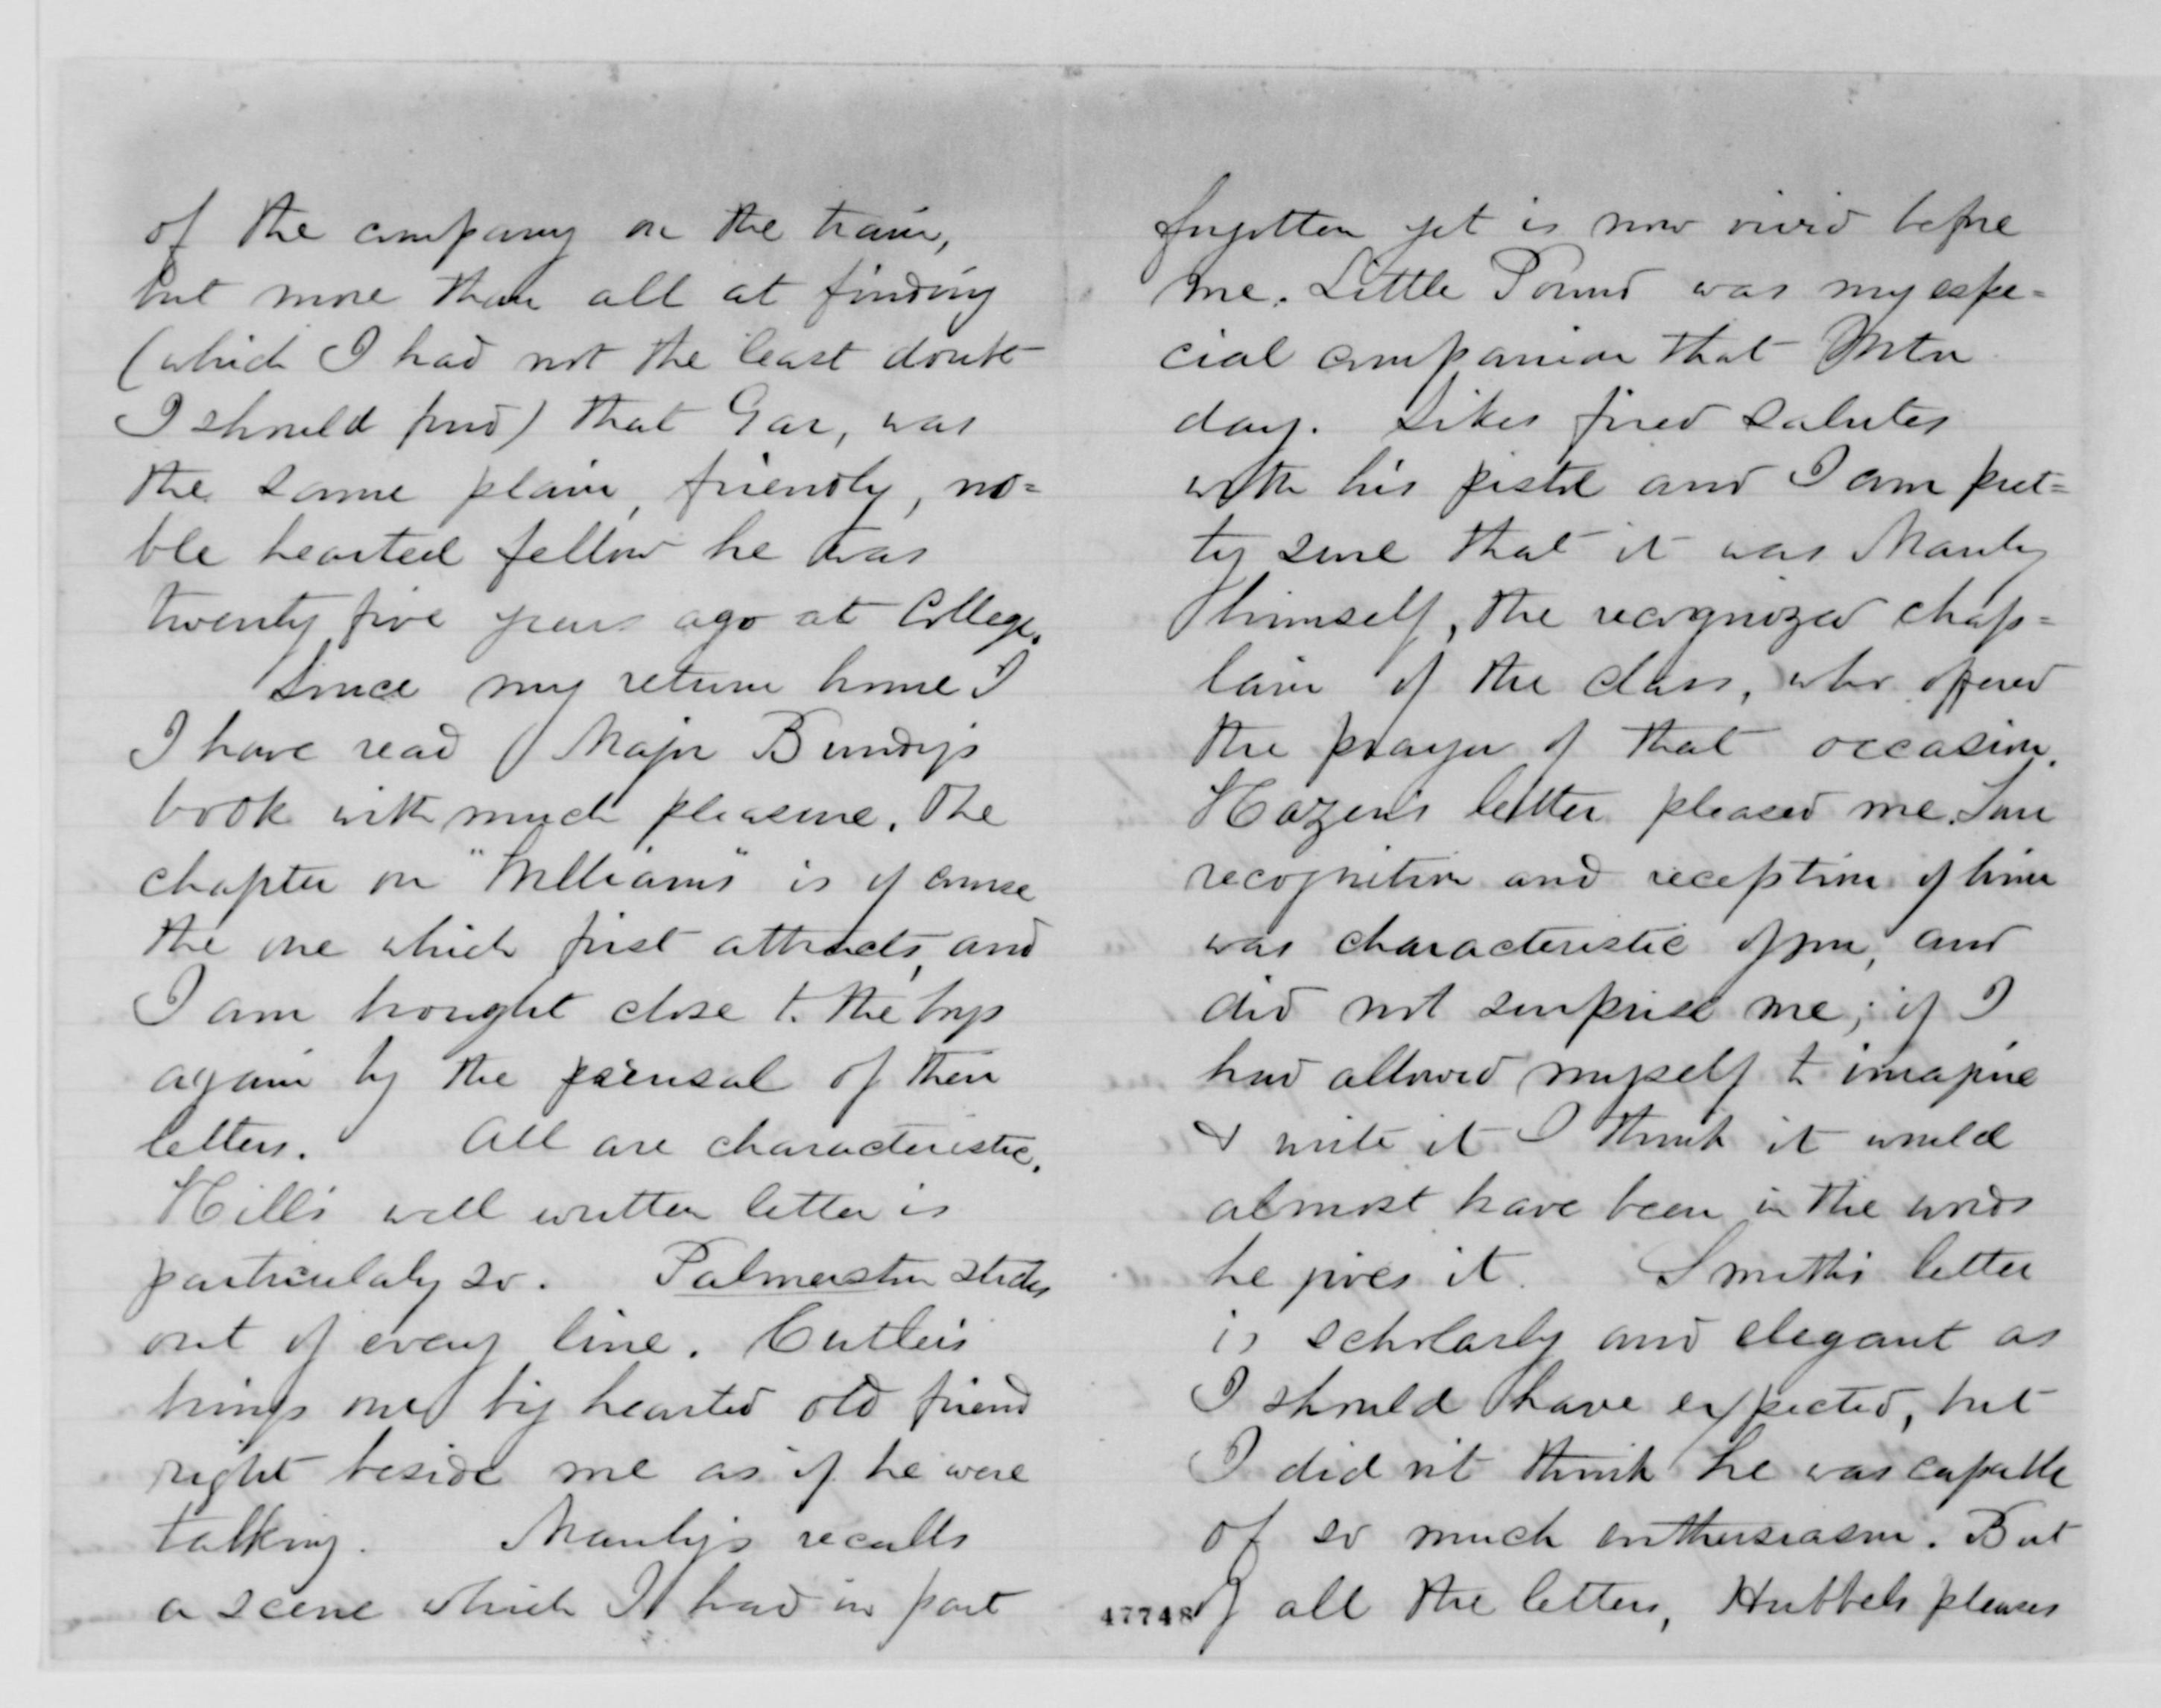 of the company on the train,
but more than all at finding
(which I had not the least doubt
I should find) that Gar, was
the same plain, friendly, no=
ble hearted fellow he was
twenty five years ago at College.
Since my return home I
I have read Major Bundy's
book with much pleasure. The
chapter on "Williams" is of course
the one which first attracts, and
I am brought close to the boys
again by the perusal of their
letters. All are characteristic.
Hill's well written letter is
particulaly so. Palmerston sticks
out of every line. Cutler's
brings me big hearted old friend
right beside me as if he were
talking. Manly's recalls
a scene which I had in part
forgotten yet is now vivid before
me. Little Pound was my espe=
cial companion that Mtn
day. Sikes fired salutes
with his pistol and I am pret=
ty sure that it was Manly
himself, the recognized chap=
lain of the class, who offered
the prayer of that occasion.
Hazen's letter pleased me.
recognition and reception of him
was characteristic of you, and
did not surprise me; if I
had allowed myself to imagine
& write it I think it would
almost have been in the words
he gives it. Smith's letter
is scholarly and elegant as
I should have expected, but
I did n't think he was capable
of so much enthusiasm. But
of all the letters, Hubbels pleases
47748